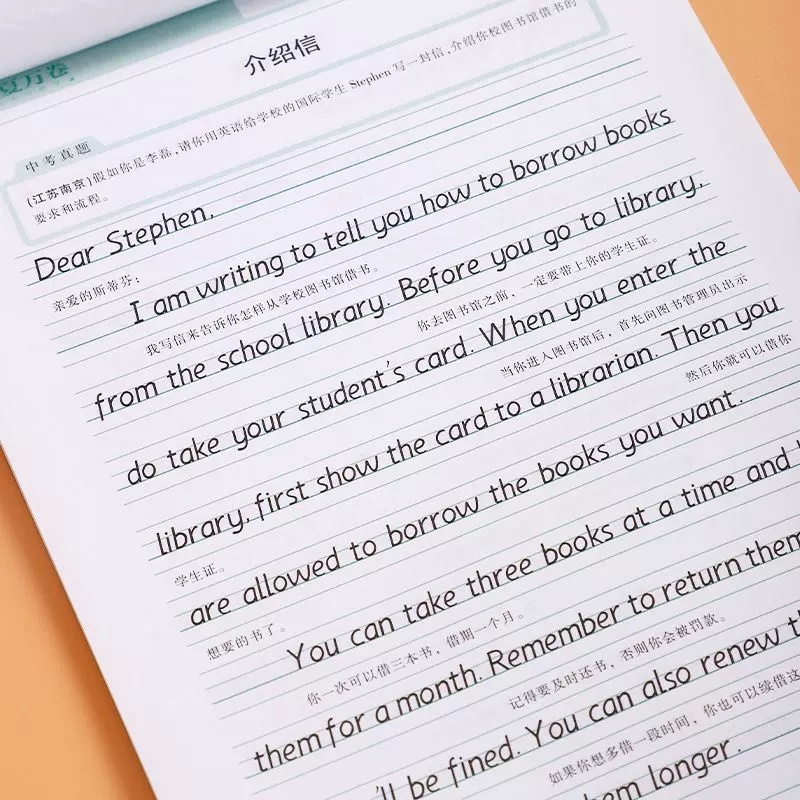 介绍信
中考真题
(江苏南京)假如你是李磊,请你用英语给学校的国际学生 Stephen 写一封信,介绍你校图书馆借书的
要求和流程。
Dear Stephen,
亲爱的斯蒂芬:
I am writing to tell you how to borrow books
我写信来告诉你怎样从学校图书馆借书。
from the school library. Before you go to library,
你去图书馆之前,一定要带上你的学生证。
do take your student's card. When you enter the
当你进入图书馆后,首先向图书管理员出示
library, first show the card to a librarian. Then you
学生证。 然后你就可以借你
are allowed to borrow the books you want.
想要的书了。
You can take three books at a time and
你一次可以借三本书,借期一个月。
them for a month. Remember to return them
记得要及时还书,否则你会被罚款。
'll be fined. You can also renew
如果你想多借一段时间,你也可以续借这
them longer.